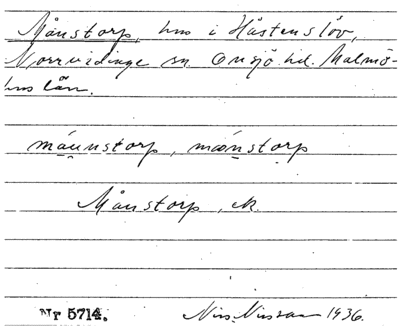 Månstorp, hus i Håstenslöv,
Norrvidinge sn. Onsjö hd. Malmö-
hus län.
máunstorp, mǽnstorp
Månstorp, ek.
Nr 5714. Nils Nilsson 1936.